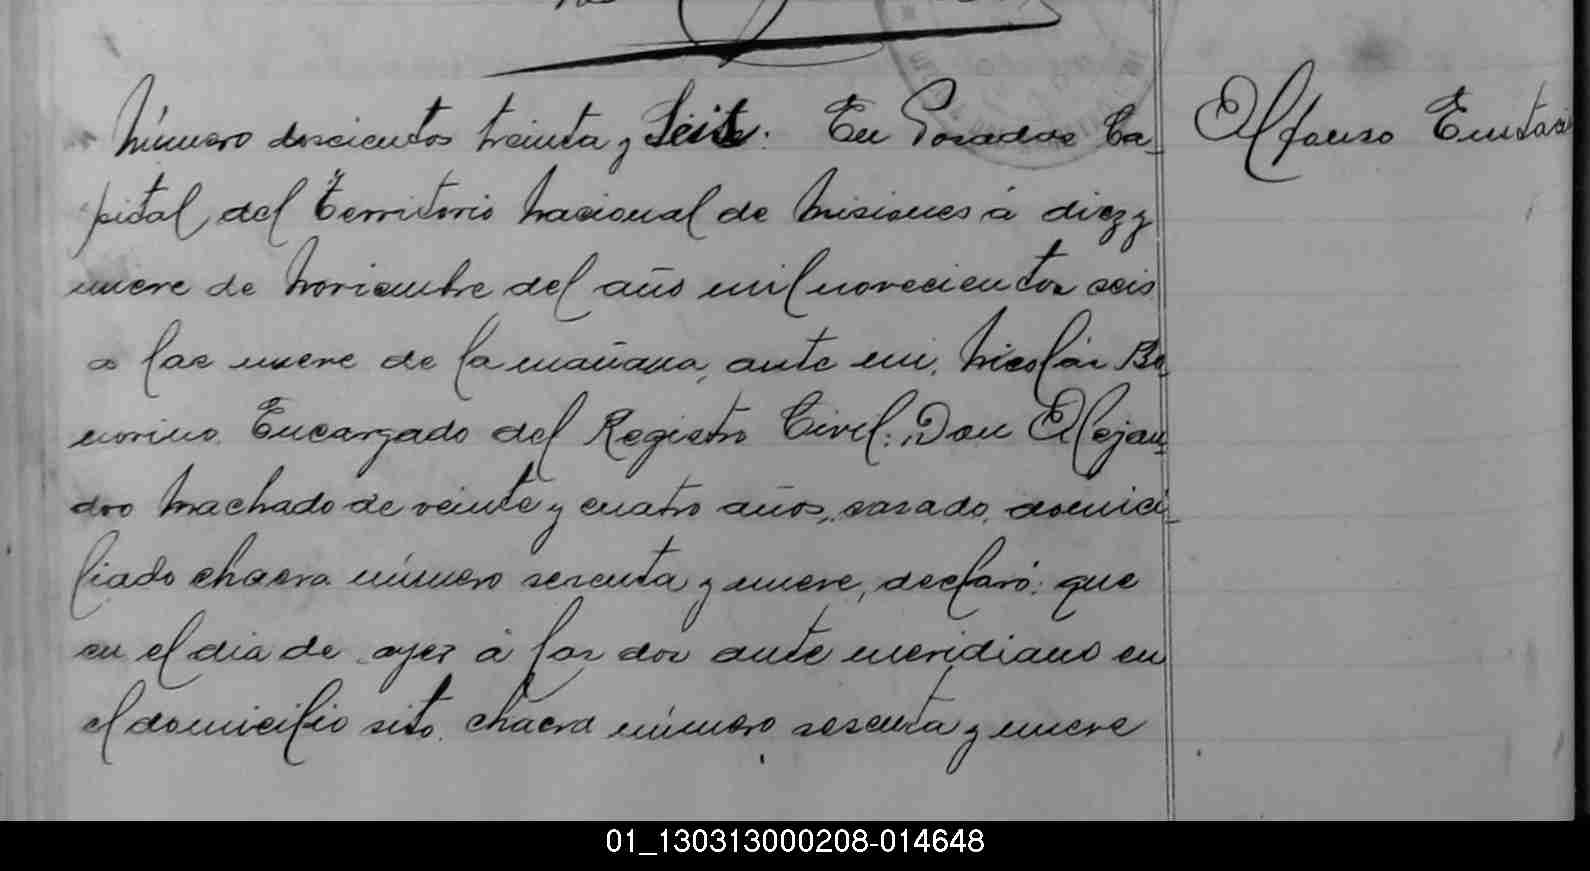 Número doscientos treinta y Seis. En Posadas Ca-
pital del Territorio Nacional de Misiones á diez y
nueve de Noviembre del año mil novecientos seis
a las nueve de la mañana, ante mi, Nicolás Bo-
norino Encargado del Registro Civil: Don Alejan-
dro Machado de veinte y cuatro años, casado, domici-
liado chacra número sesenta y nueve, declaró: que
en el dia de ayer á las dos ante meridiano en
el domicilio sito chacra número sesenta y nueve
Alfonso Eustaci
01_130313000208-014648